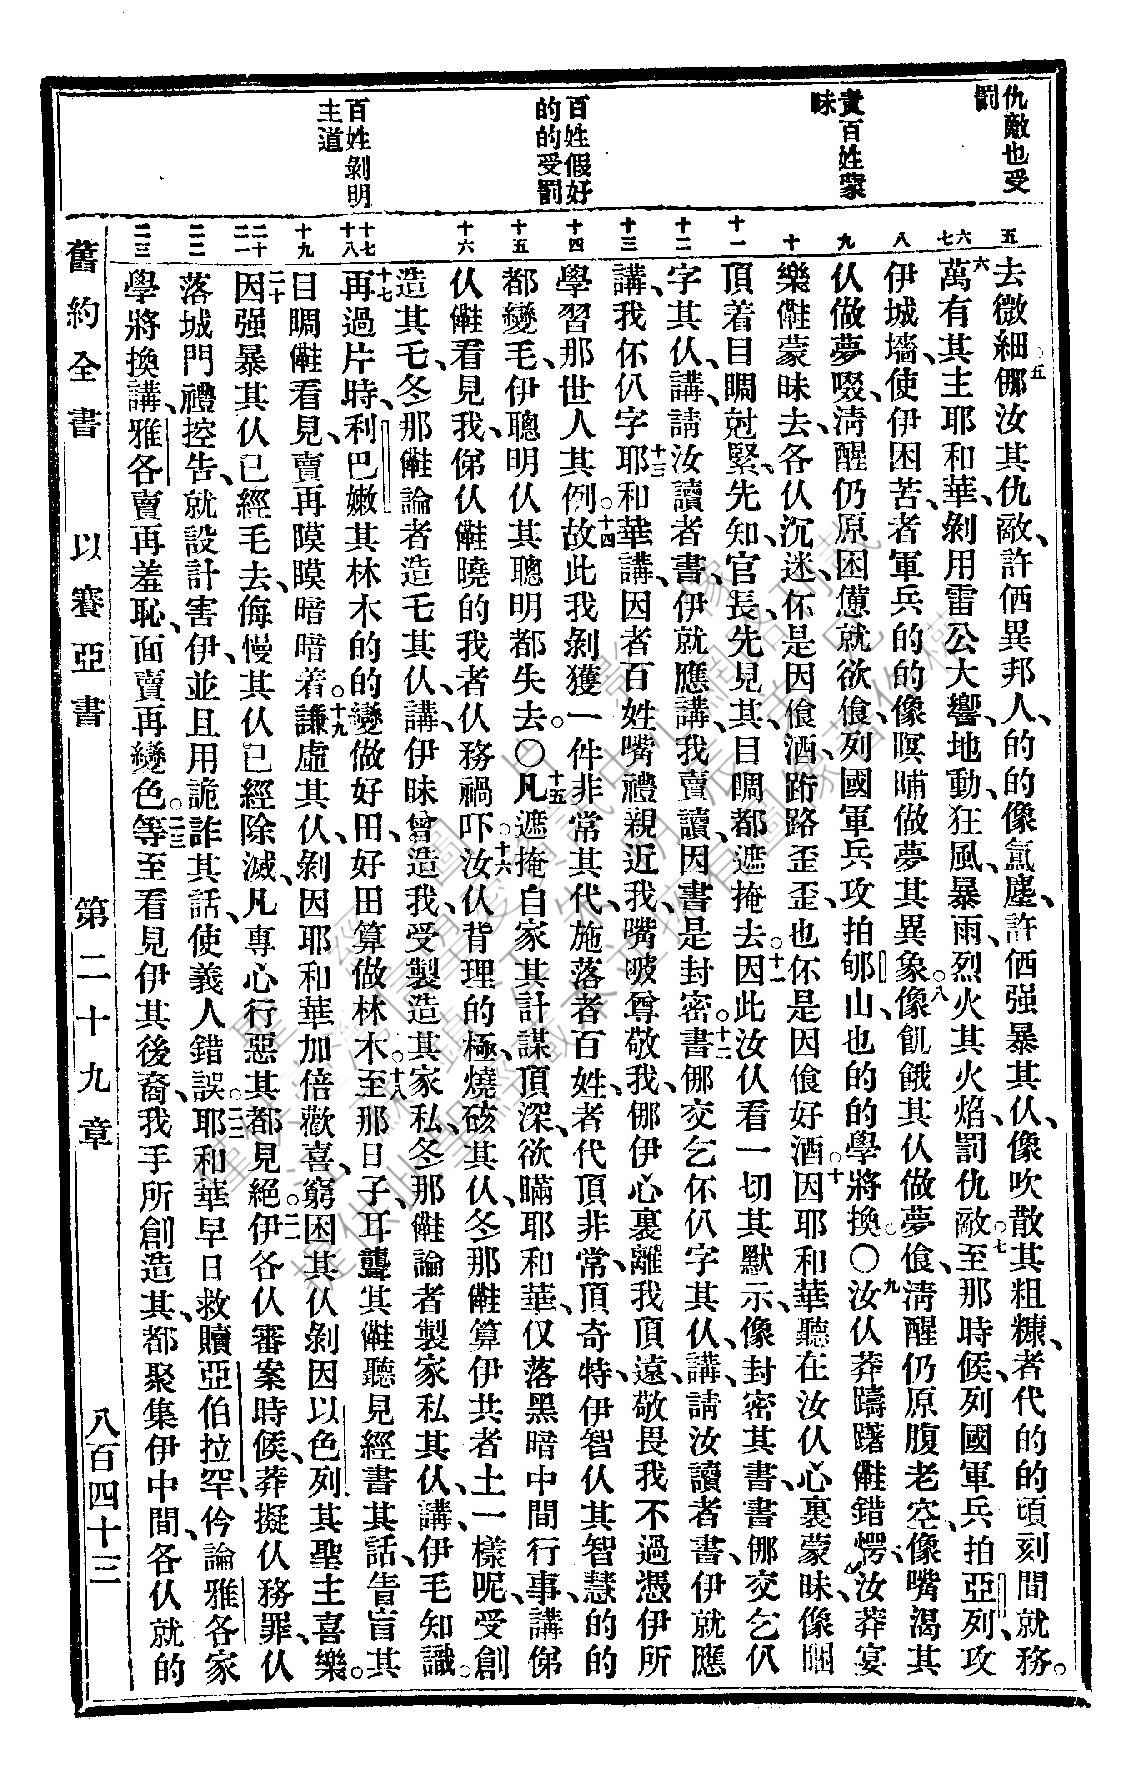 仇敵也受
罰
責百姓蒙
昧
百姓假好
的的受罰
百姓剝明
主道
五
六
七
八
九
十
十一
十二
十三
十四
十五
十六
十七
十八
十九
二十
二一
二二
二三
去微細。五㑚汝其仇敵、許僫異邦人、的的像氤塵、許僫强暴其仈、像吹散其粗糠、者代的的頃刻間就務。
六萬有其主耶和華、剝用雷公大響、地動、狂風暴雨、烈火其火焰、罰仇敵。七至那時候、列國軍兵、拍亞列、攻
伊城墻、使伊困苦者軍兵的的像暝晡做夢其異象。八像飢餓其仈做夢、飡、淸醒仍原腹老空、像嘴渴其
仈做夢啜、淸醒仍原困憊就欲飡、列國軍兵攻拍郇山也的的學將換。〇九汝仈莽躊躇㒰錯愕、汝莽宴
樂㒰蒙昧去、各仈沉迷、伓是因飡酒、跻路歪歪、也伓是因飡好酒。十因耶和華聽在汝仈心裏蒙昧、像睏
頂着目睭尅緊、先知官長、先見其、目睭都遮掩去。十一因此汝仈看一切其默示、像封密其書、書㑚交乞仈
字其仈、講、請汝讀者書、伊就應講、我賣讀、因書是封密。十二書㑚交乞伓仈字其仈、講、請汝讀者書、伊就應
講、我伓仈字。十三耶和華講、因者百姓嘴禮親近我、嘴㗑尊敬我、㑚伊心裏離我頂遠、敬畏我不過憑伊所
學習那世人其例。十四故此我剝獲一件非常其代、施落者百姓、者代頂非常、頂奇特、伊智仈其智慧的的
都變毛、伊聰明仈其聰明都失去。〇十五凡遮掩自家其計謀頂深、欲瞞耶和華、仅落黑暗中間行事、講俤
仈㒰看見我、俤仈㒰曉的我者仈務禍。十六吓、汝仈背理的極、燒硋其仈、冬那㒰算伊共者土一樣呢、受創
造其乇、冬那㒰論者造乇其仈、講、伊昧曾造我、受製造其家私、冬那㒰論者製家私其仈、講、伊毛知識。
十七再過片時、利巴嫩其林木的的變做好田、好田算做林木。十八至那日子、耳聾其㒰聽見經書其話、靑盲其
目睭㒰看見、賣再瞙瞙暗暗着。十九謙虛其仈、剝因耶和華加倍歡喜、窮困其仈剝因以色列其聖主喜樂。
二十因强暴其仈已經毛去、侮慢其仈已經除滅、凡專心行惡其都見絕。二一伊各仈審案時候、莽擬仈務罪、仈
落城門禮控告、就設計害伊、並且用詭詐其話、使義人錯誤。二二耶和華早日救贖亞伯拉罕、仱論雅各家
學將換講、雅各賣再羞恥、面賣再變色。二三等至看見伊其後裔、我手所創造其、都聚集伊中間、各仈就的
舊約全書　以賽亞書　第二十九章　八百四十三